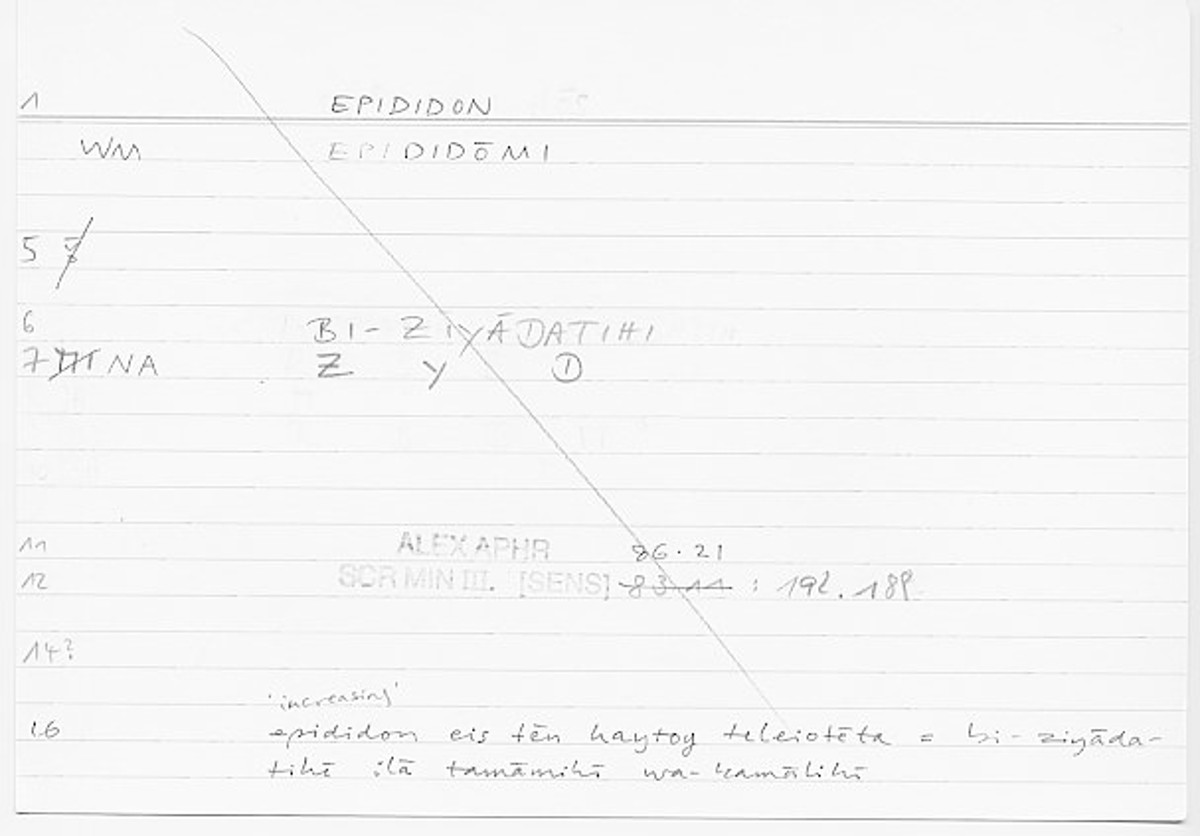 1 EPIDIDON
WM EPIDIDŌMI
5
6 BI- ZIYĀDATIHI
7 NA Z Y D
11 ALEX APHR 86.21
12 SCR MIN III. [SENS] 83 11 : 192. 189
14?
'increasing'
16 epididon eis tēn haytoy teleiotēta = bi-ziyāda-
tihī ilā tamāmihī wa-kamālihī